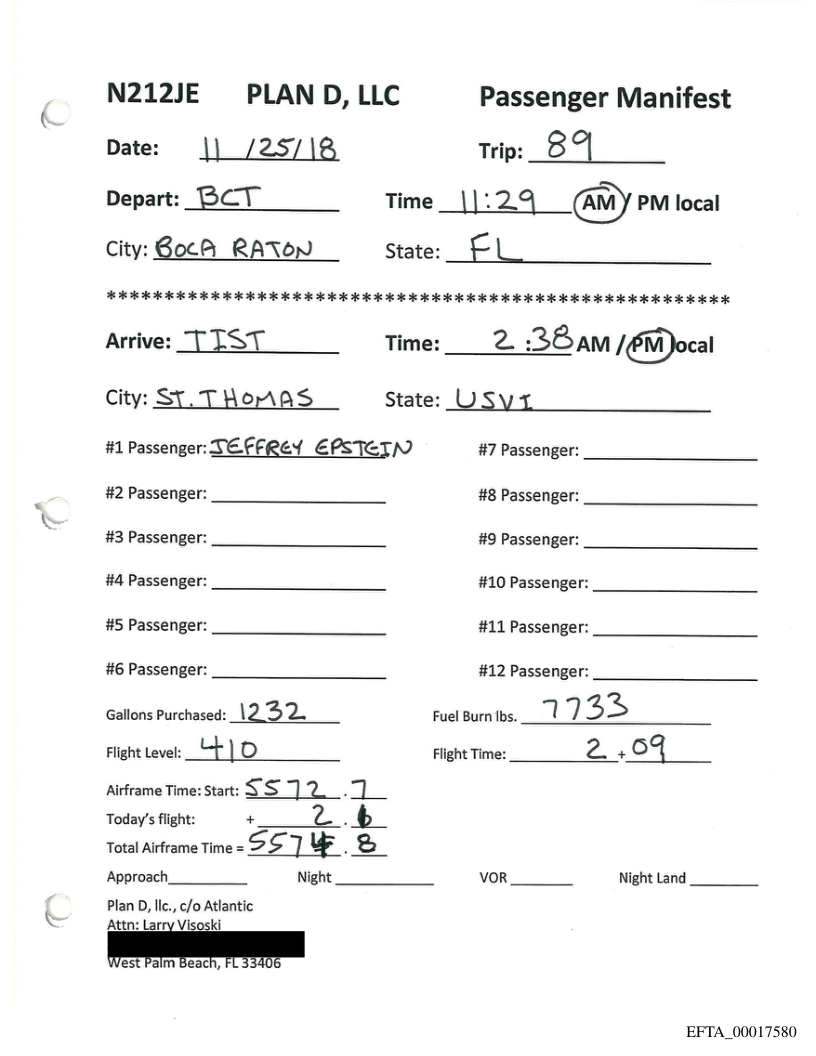 N212JE PLAN D, LLC Passenger Manifest
Date: 11/25/18 Trip: 89
Depart: BCT Time 11:29 AM / PM local
City: BOCA RATON State: FL
******************************************************
Arrive: TIST Time: 2:38 AM / PM local
City: ST. THOMAS State: USVI
#1 Passenger: JEFFREY EPSTEIN #7 Passenger:
#2 Passenger: #8 Passenger:
#3 Passenger: #9 Passenger:
#4 Passenger: #10 Passenger:
#5 Passenger: #11 Passenger:
#6 Passenger: #12 Passenger:
Gallons Purchased: 1232 Fuel Burn lbs. 7733
Flight Level: 410 Flight Time: 2 + 09
Airframe Time: Start: 5572.7
Today's flight: + 2.
Total Airframe Time = 5574.8
Approach Night VOR Night Land
Plan D, llc., c/o Atlantic
Attn: Larry Visoski
West Palm Beach, FL 33406
EFTA_00017580